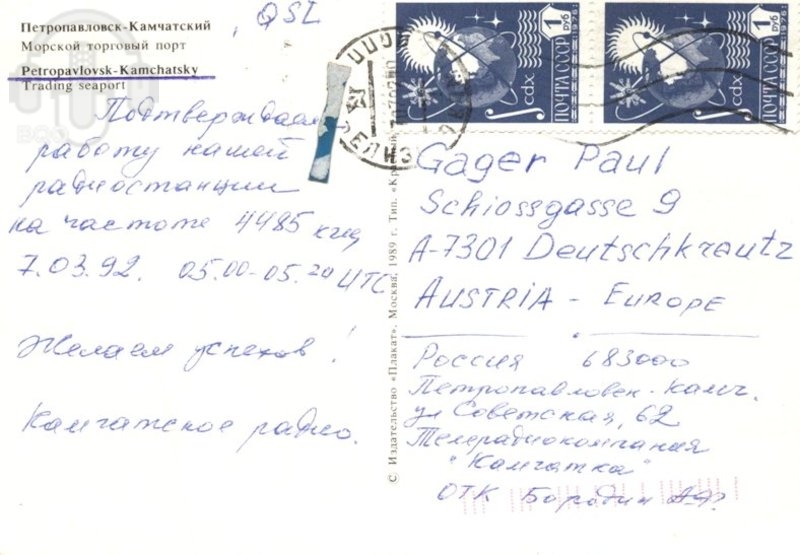 Петропавловск-Камчатский
Морской торговый порт
Petropavlovsk-Kamchatsky
Trading seaport
QSL
Подтверждаем
работу нашей
радиостанции
на частоте 4485 кгц
7.03.92. 05.00-05.20 UTC
Желаем успехов!
Камчатское радио.
С Издательство «Плакат». Москва, 1989 г. Тип.
1 РУБ
ПОЧТА СССР
1976
cdx
1 РУБ
ПОЧТА СССР
1976
cdx
СССР
Gager Paul
Schiossgasse 9
A-7301 Deutschkreutz
AUSTRIA - EUROPE
Россия 683000
Петропавловск-Камч.
ул Советская, 62
Телерадиокомпания
"Камчатка"
ОТК Бородин